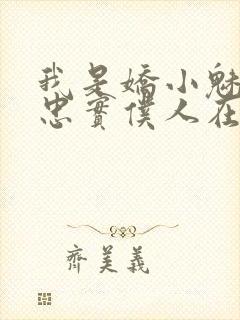 我是嬌小魅
忠實僕人在
齊美義